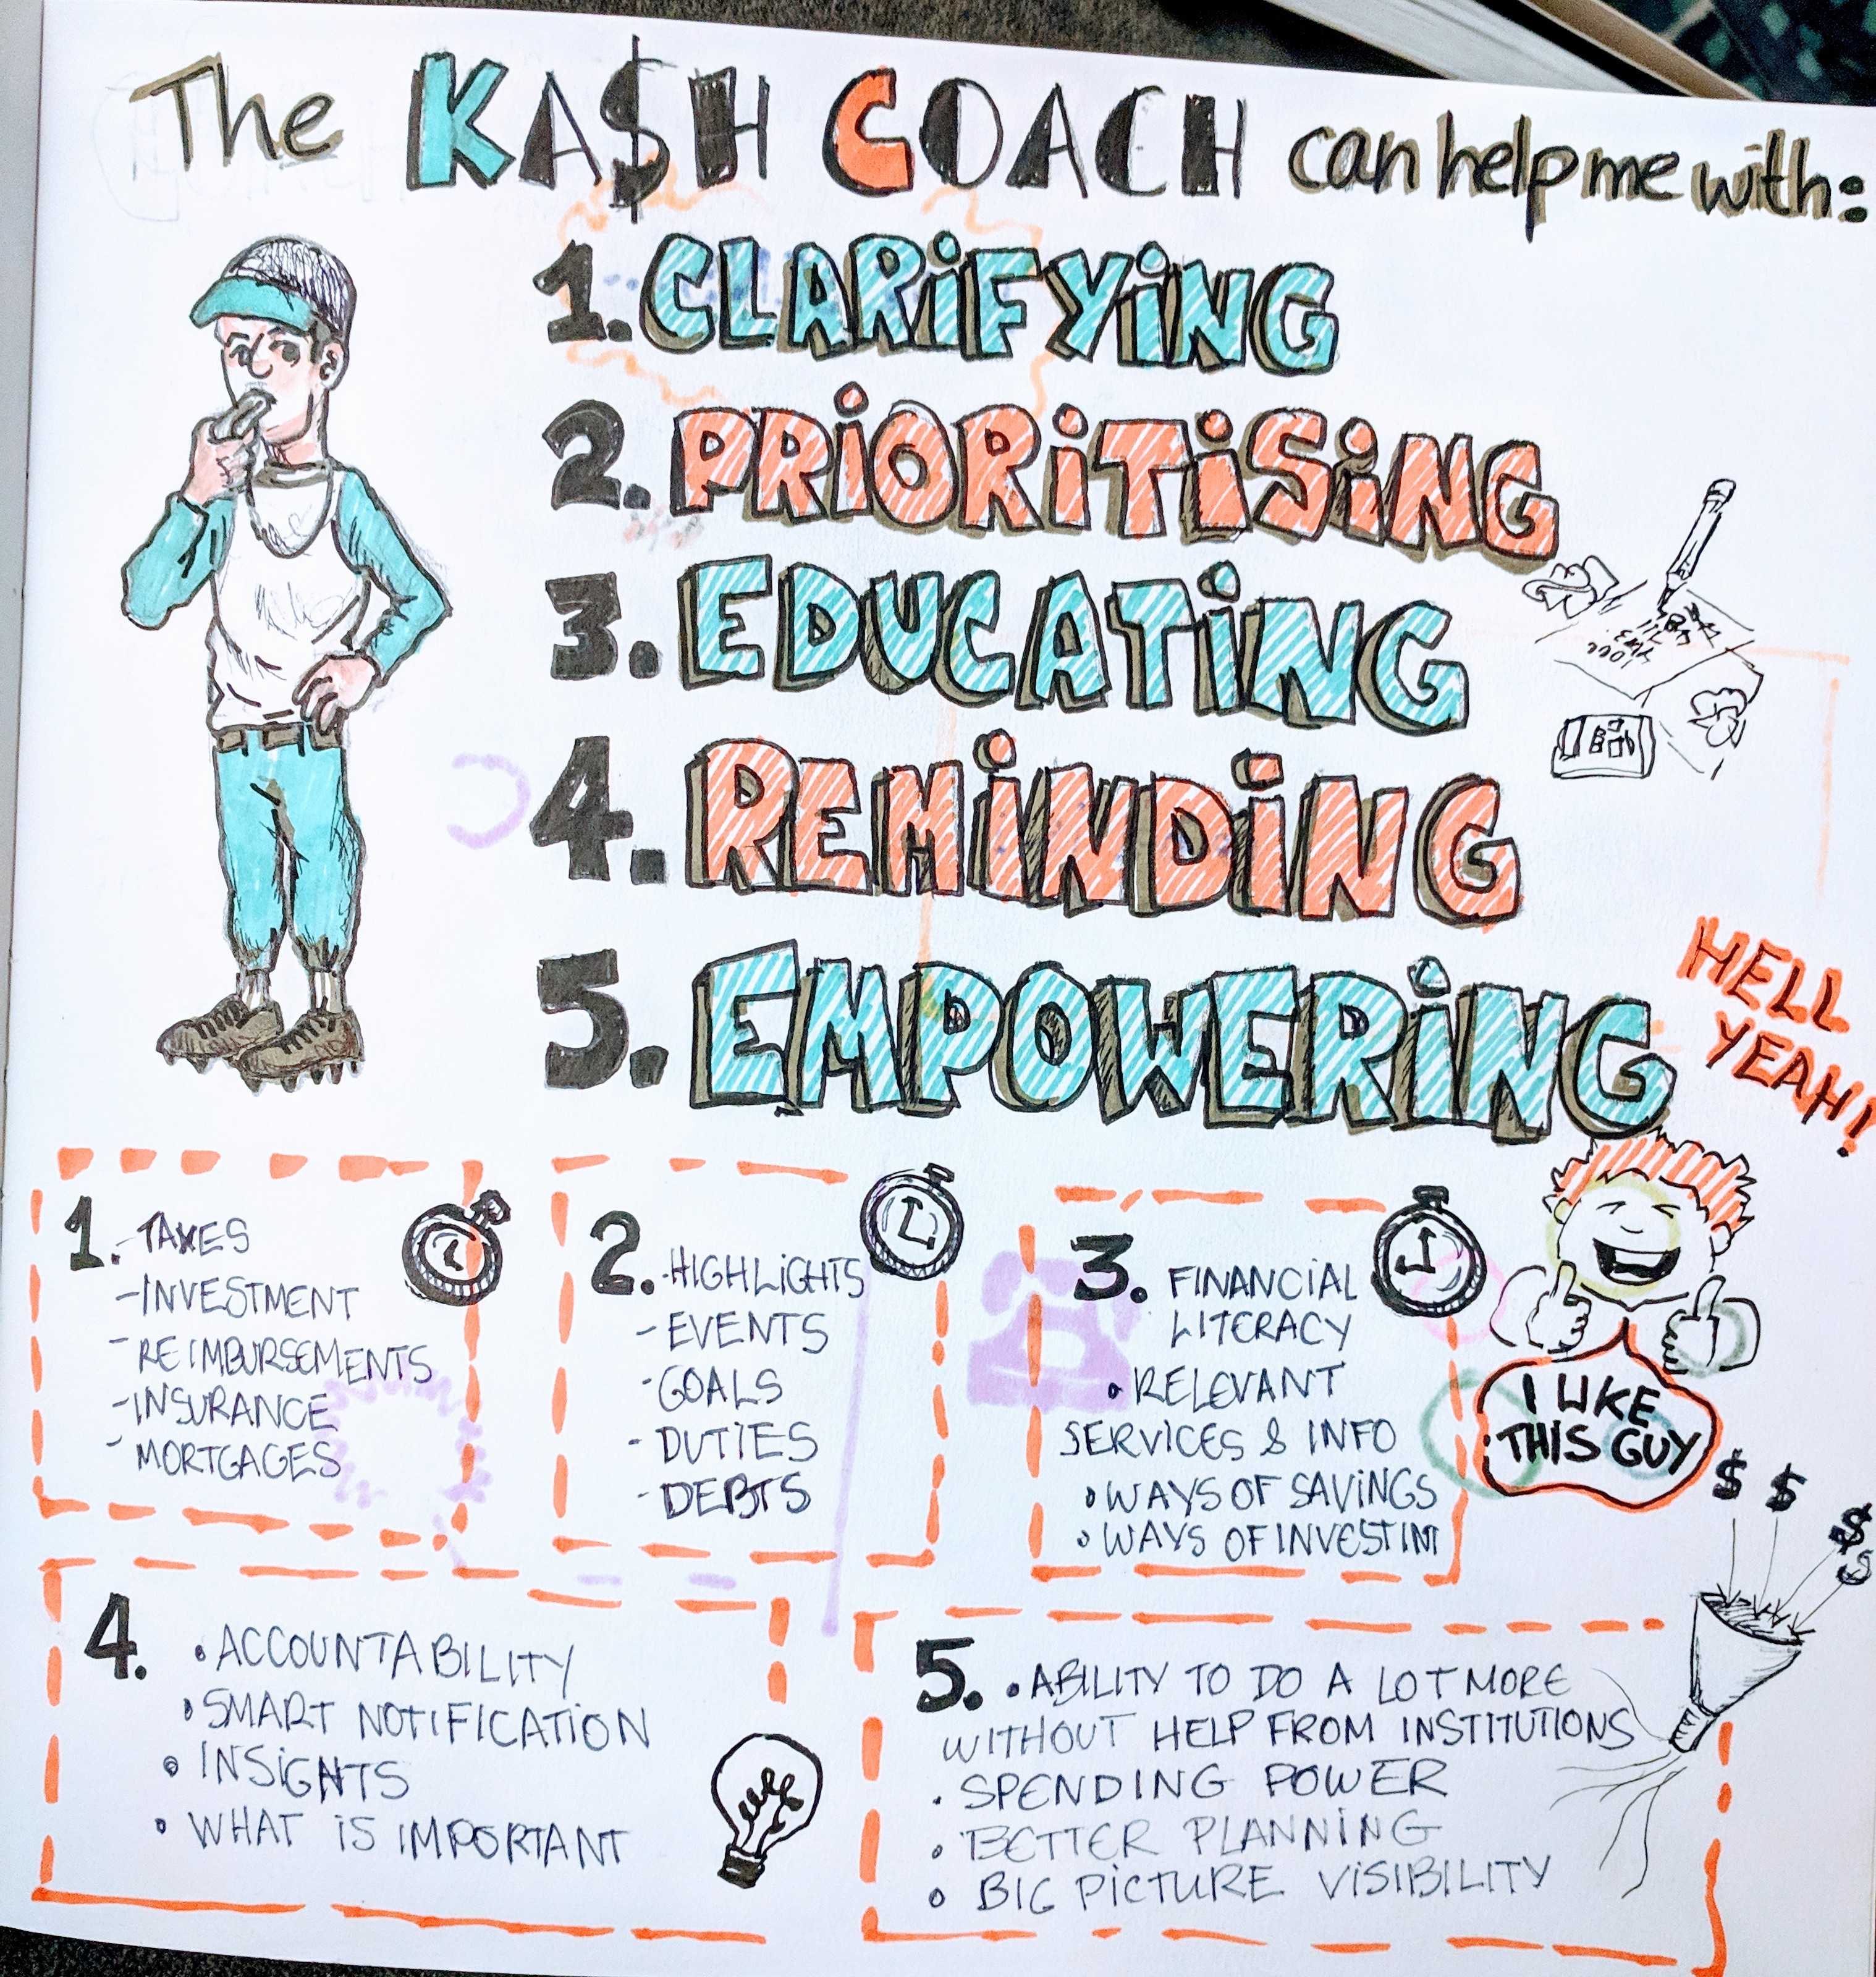 The KA$H COACH can help me with:
1. CLARiFYiNG
2. PRiORiTiSiNG
3. EDUCATiNG
4. REMiNDiNG
5. EMPOWERiNG
HELL
YEAH!
1. - TAXES
- INVESTMENT
- REIMBURSEMENTS
- INSURANCE
- MORTGAGES
2. - HIGHLiGHTS
- EVENTS
- GOALS
- DUTIES
- DEBTS
3. FINANCiAL
LITERACY
• RELEVANT
SERVICES & INFO
• WAYS OF SAVINGS
• WAYS OF INVESTIM
I LIKE
THIS GUY
$ $ $ $
4. • ACCOUNTABILITY
• SMART NOTIFICATION
• INSiGHTS
• WHAT iS IMPORTANT
5. • ABILITY TO DO A LOT MORE
WITHOUT HELP FROM INSTITUTIONS
• SPENDING POWER
• BETTER PLANNiNG
• BIG PiCTURE ViSIBILITY